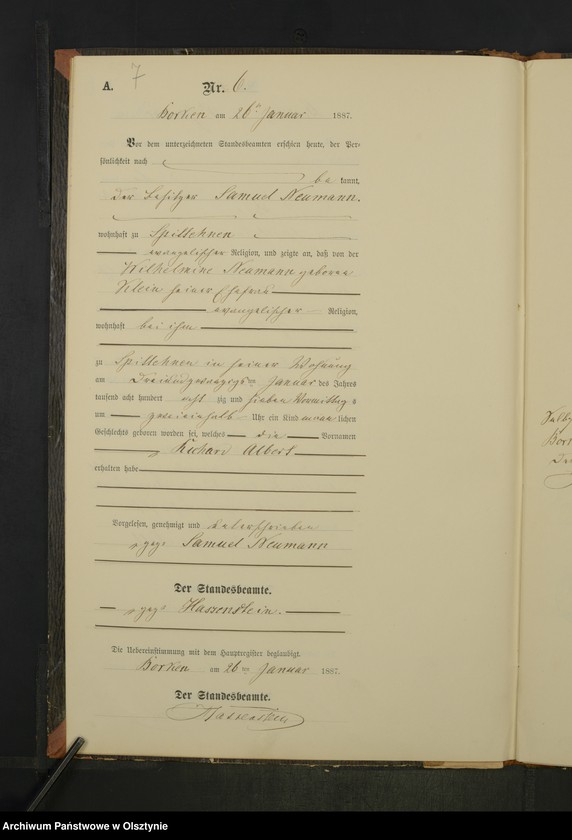 7
A.
Nr. 6.
Borken am 26ten Januar 1887.
Vor dem unterzeichneten Standesbeamten erschien heute, der Per-
sönlichkeit nach
be kannt,
der Besitzer Samuel Neumann.
wohnhaft zu Spittehnen
evangelischer Religion, und zeigte an, daß von der
Wilhelmine Neumann geborene
Klein seiner Ehefrau
evangelischer Religion,
wohnhaft bei ihm
zu Spittehnen in seiner Wohnung
am dreiundzwanzigsten Januar des Jahres
tausend acht hundert acht zig und sieben Vormittags
um zweieinhalb Uhr ein Kind männlichen
Geschlechts geboren worden sei, welches die Vornamen
Richard Albert
erhalten habe
Vorgelesen, genehmigt und unterschrieben
gez. Samuel Neumann
Der Standesbeamte.
gez. Hassenstein.
Die Uebereinstimmung mit dem Hauptregister beglaubigt.
Borken am 26ten Januar 1887.
Der Standesbeamte.
Hassenstein
Bor
Archiwum Państwowe w Olsztynie